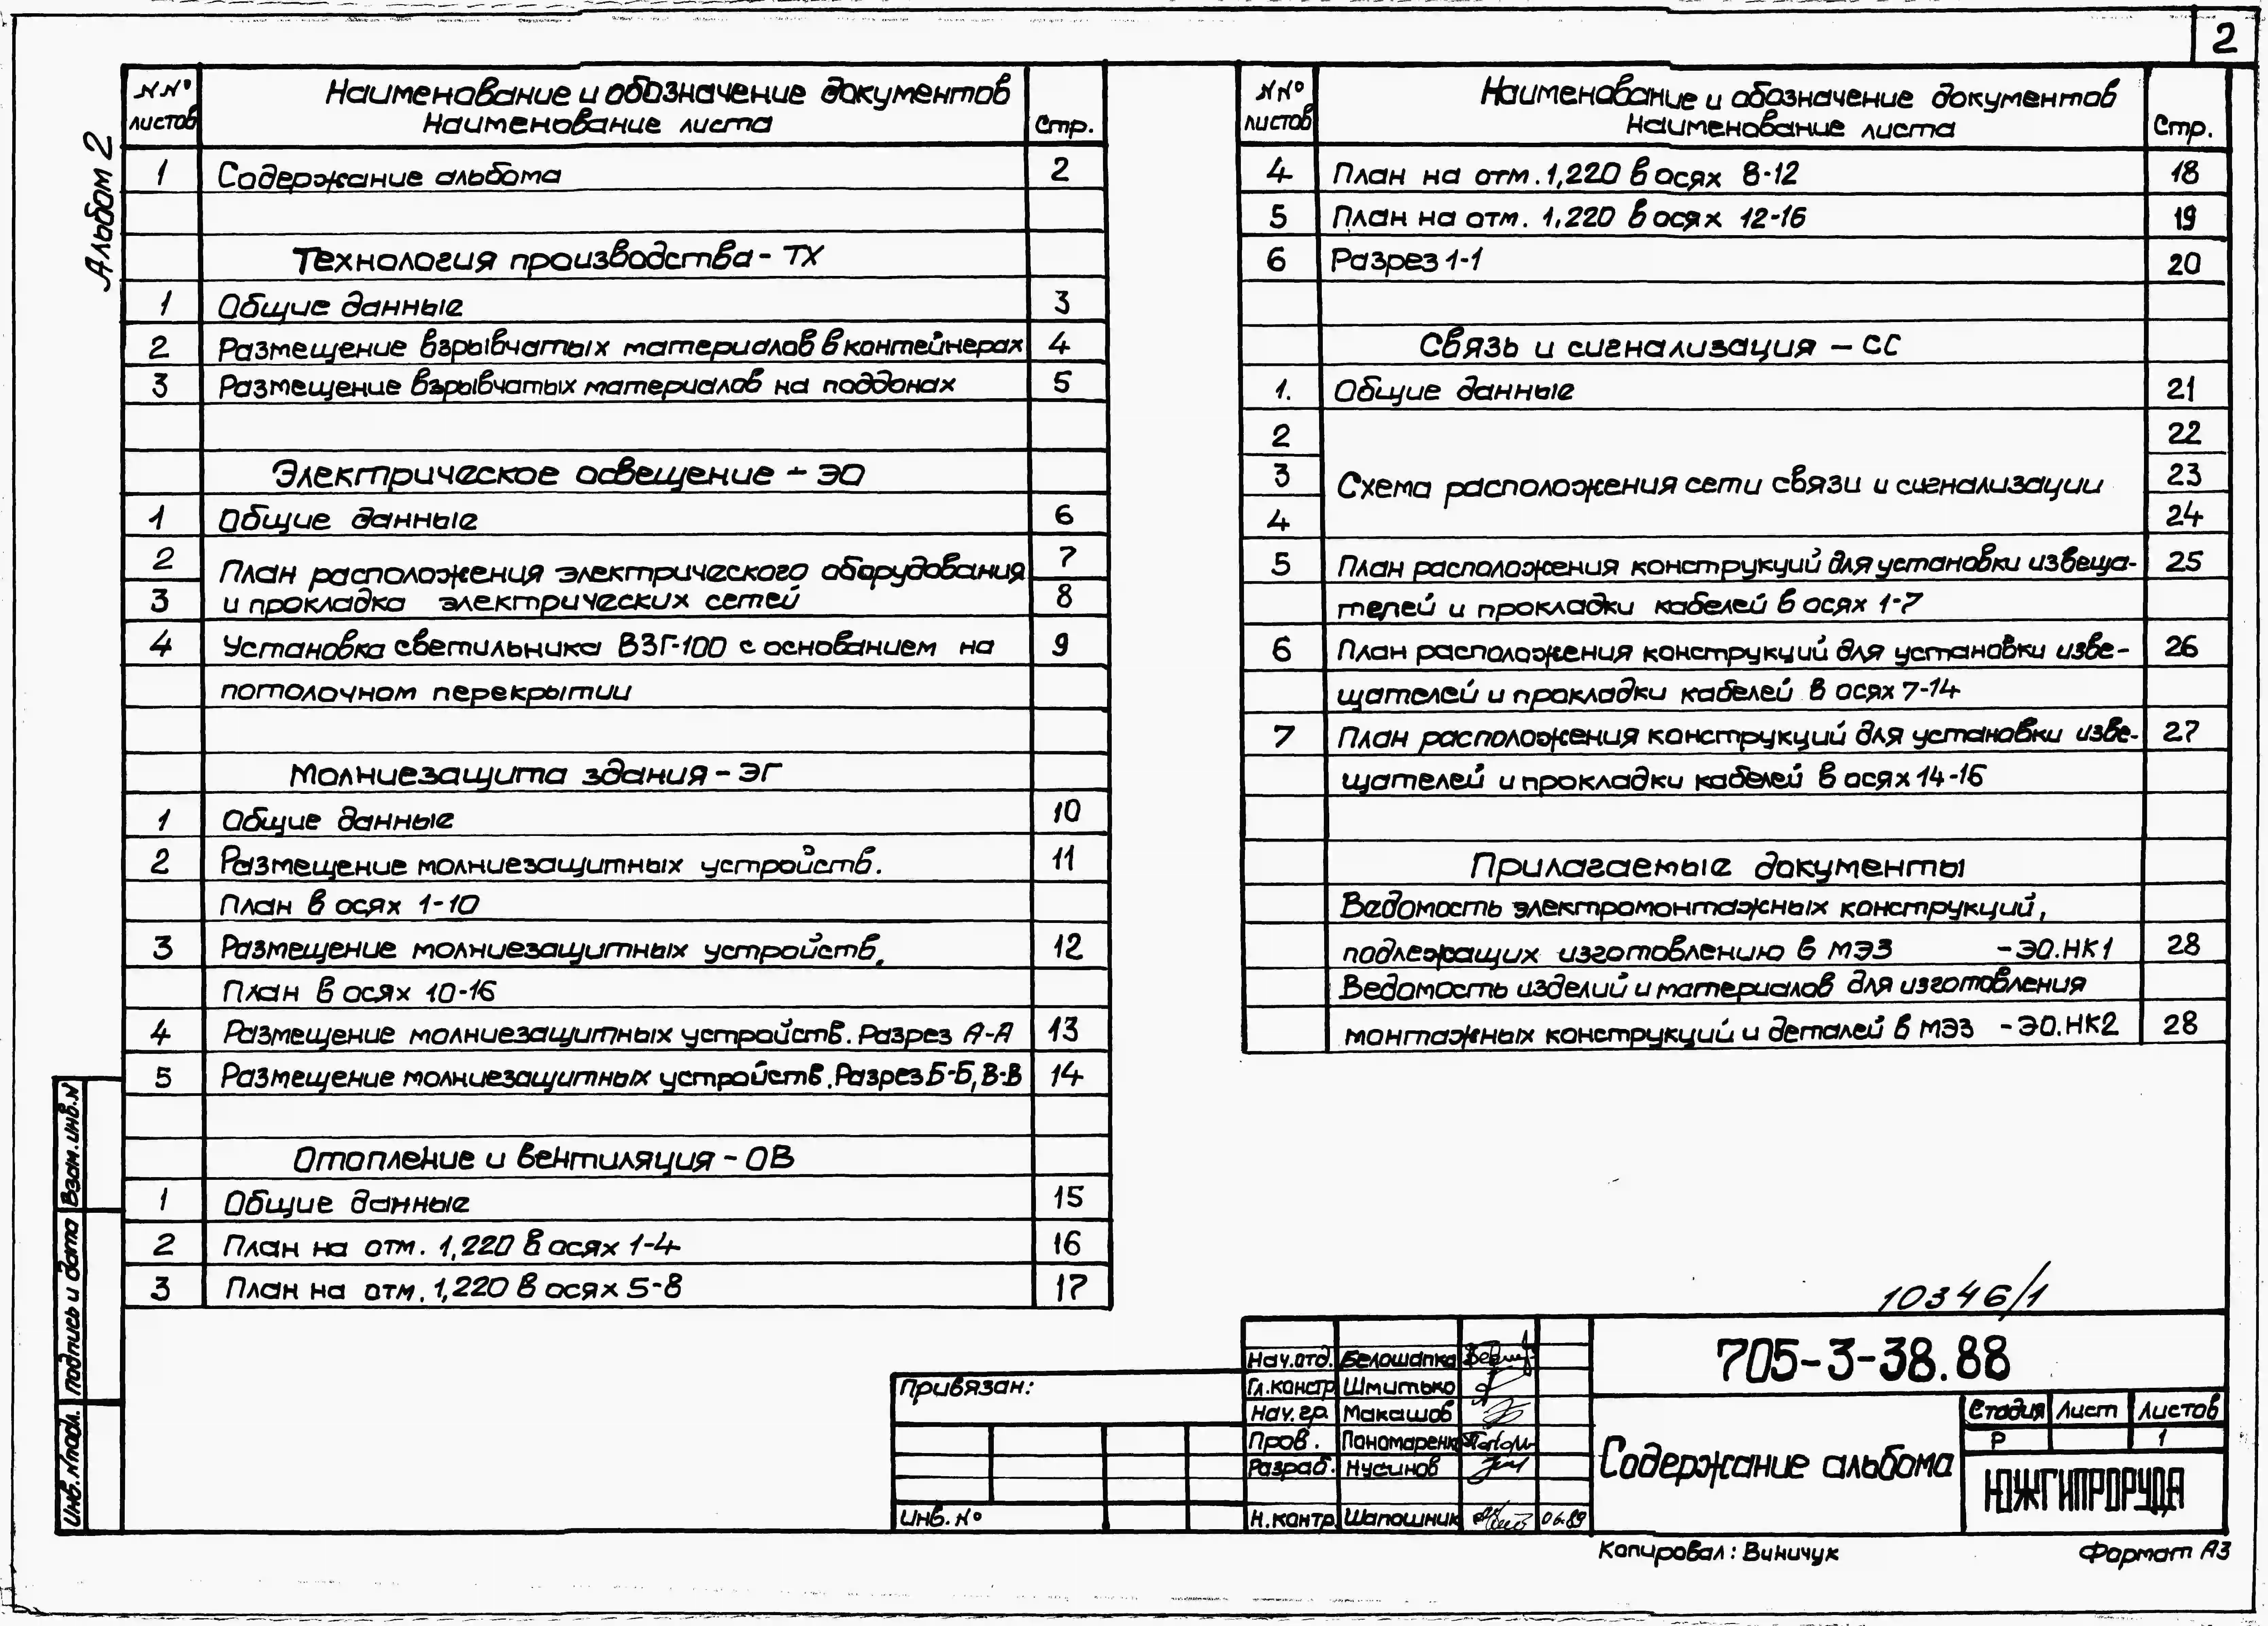 2
Альбом 2
NNº листов Наименование и обозначение документов Наименование листа Стр.
1 Содержание альбома 2
Технология производства - ТХ
1 Общие данные 3
2 Размещение взрывчатых материалов в контейнерах 4
3 Размещение взрывчатых материалов на поддонах 5
Электрическое освещение - ЭО
1 Общие данные 6
2 План расположения электрического оборудования 7
3 и прокладка электрических сетей 8
4 Установка светильника ВЗГ-100 с основанием на 9
потолочном перекрытии
Молниезащита здания - ЭГ
1 Общие данные 10
2 Размещение молниезащитных устройств. 11
План в осях 1-10
3 Размещение молниезащитных устройств. 12
План в осях 10-16
4 Размещение молниезащитных устройств. Разрез А-А 13
5 Размещение молниезащитных устройств. Разрез Б-Б, В-В 14
Отопление и вентиляция - ОВ
1 Общие данные 15
2 План на отм. 1,220 в осях 1-4 16
3 План на отм. 1,220 в осях 5-8 17
NNº листов Наименование и обозначение документов Наименование листа Стр.
4 План на отм. 1,220 в осях 8-12 18
5 План на отм. 1,220 в осях 12-16 19
6 Разрез 1-1 20
Связь и сигнализация - СС
1. Общие данные 21
2 22
3 Схема расположения сети связи и сигнализации 23
4 24
5 План расположения конструкций для установки извеща- 25
телей и прокладки кабелей в осях 1-7
6 План расположения конструкций для установки изве- 26
щателей и прокладки кабелей в осях 7-14
7 План расположения конструкций для установки изве- 27
щателей и прокладки кабелей в осях 14-16
Прилагаемые документы
Ведомость электромонтажных конструкций,
подлежащих изготовлению в МЭЗ - ЭО.НК1 28
Ведомость изделий и материалов для изготовления
монтажных конструкций и деталей в МЭЗ - ЭО.НК2 28
Взам. инв. N
Подпись и дата
Инв. N подл.
10346/1
Привязан:
Инв. Nº
Нач. отд. Белошапка
Гл. констр Шмитько
Нач. гр. Макашов
Пров. Пономаренк
Разраб. Нусинов
Н. контр. Шапошник 06.89
705-3-38.88
Содержание альбома
Стадия Лист Листов
Р 1
ЮЖГИПРОРУДА
Копировал: Виничук
Формат А3